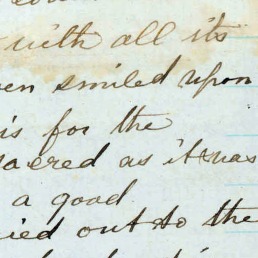 with all its
en smiled upon
is for the
sacred as it was
a good
ied out to the